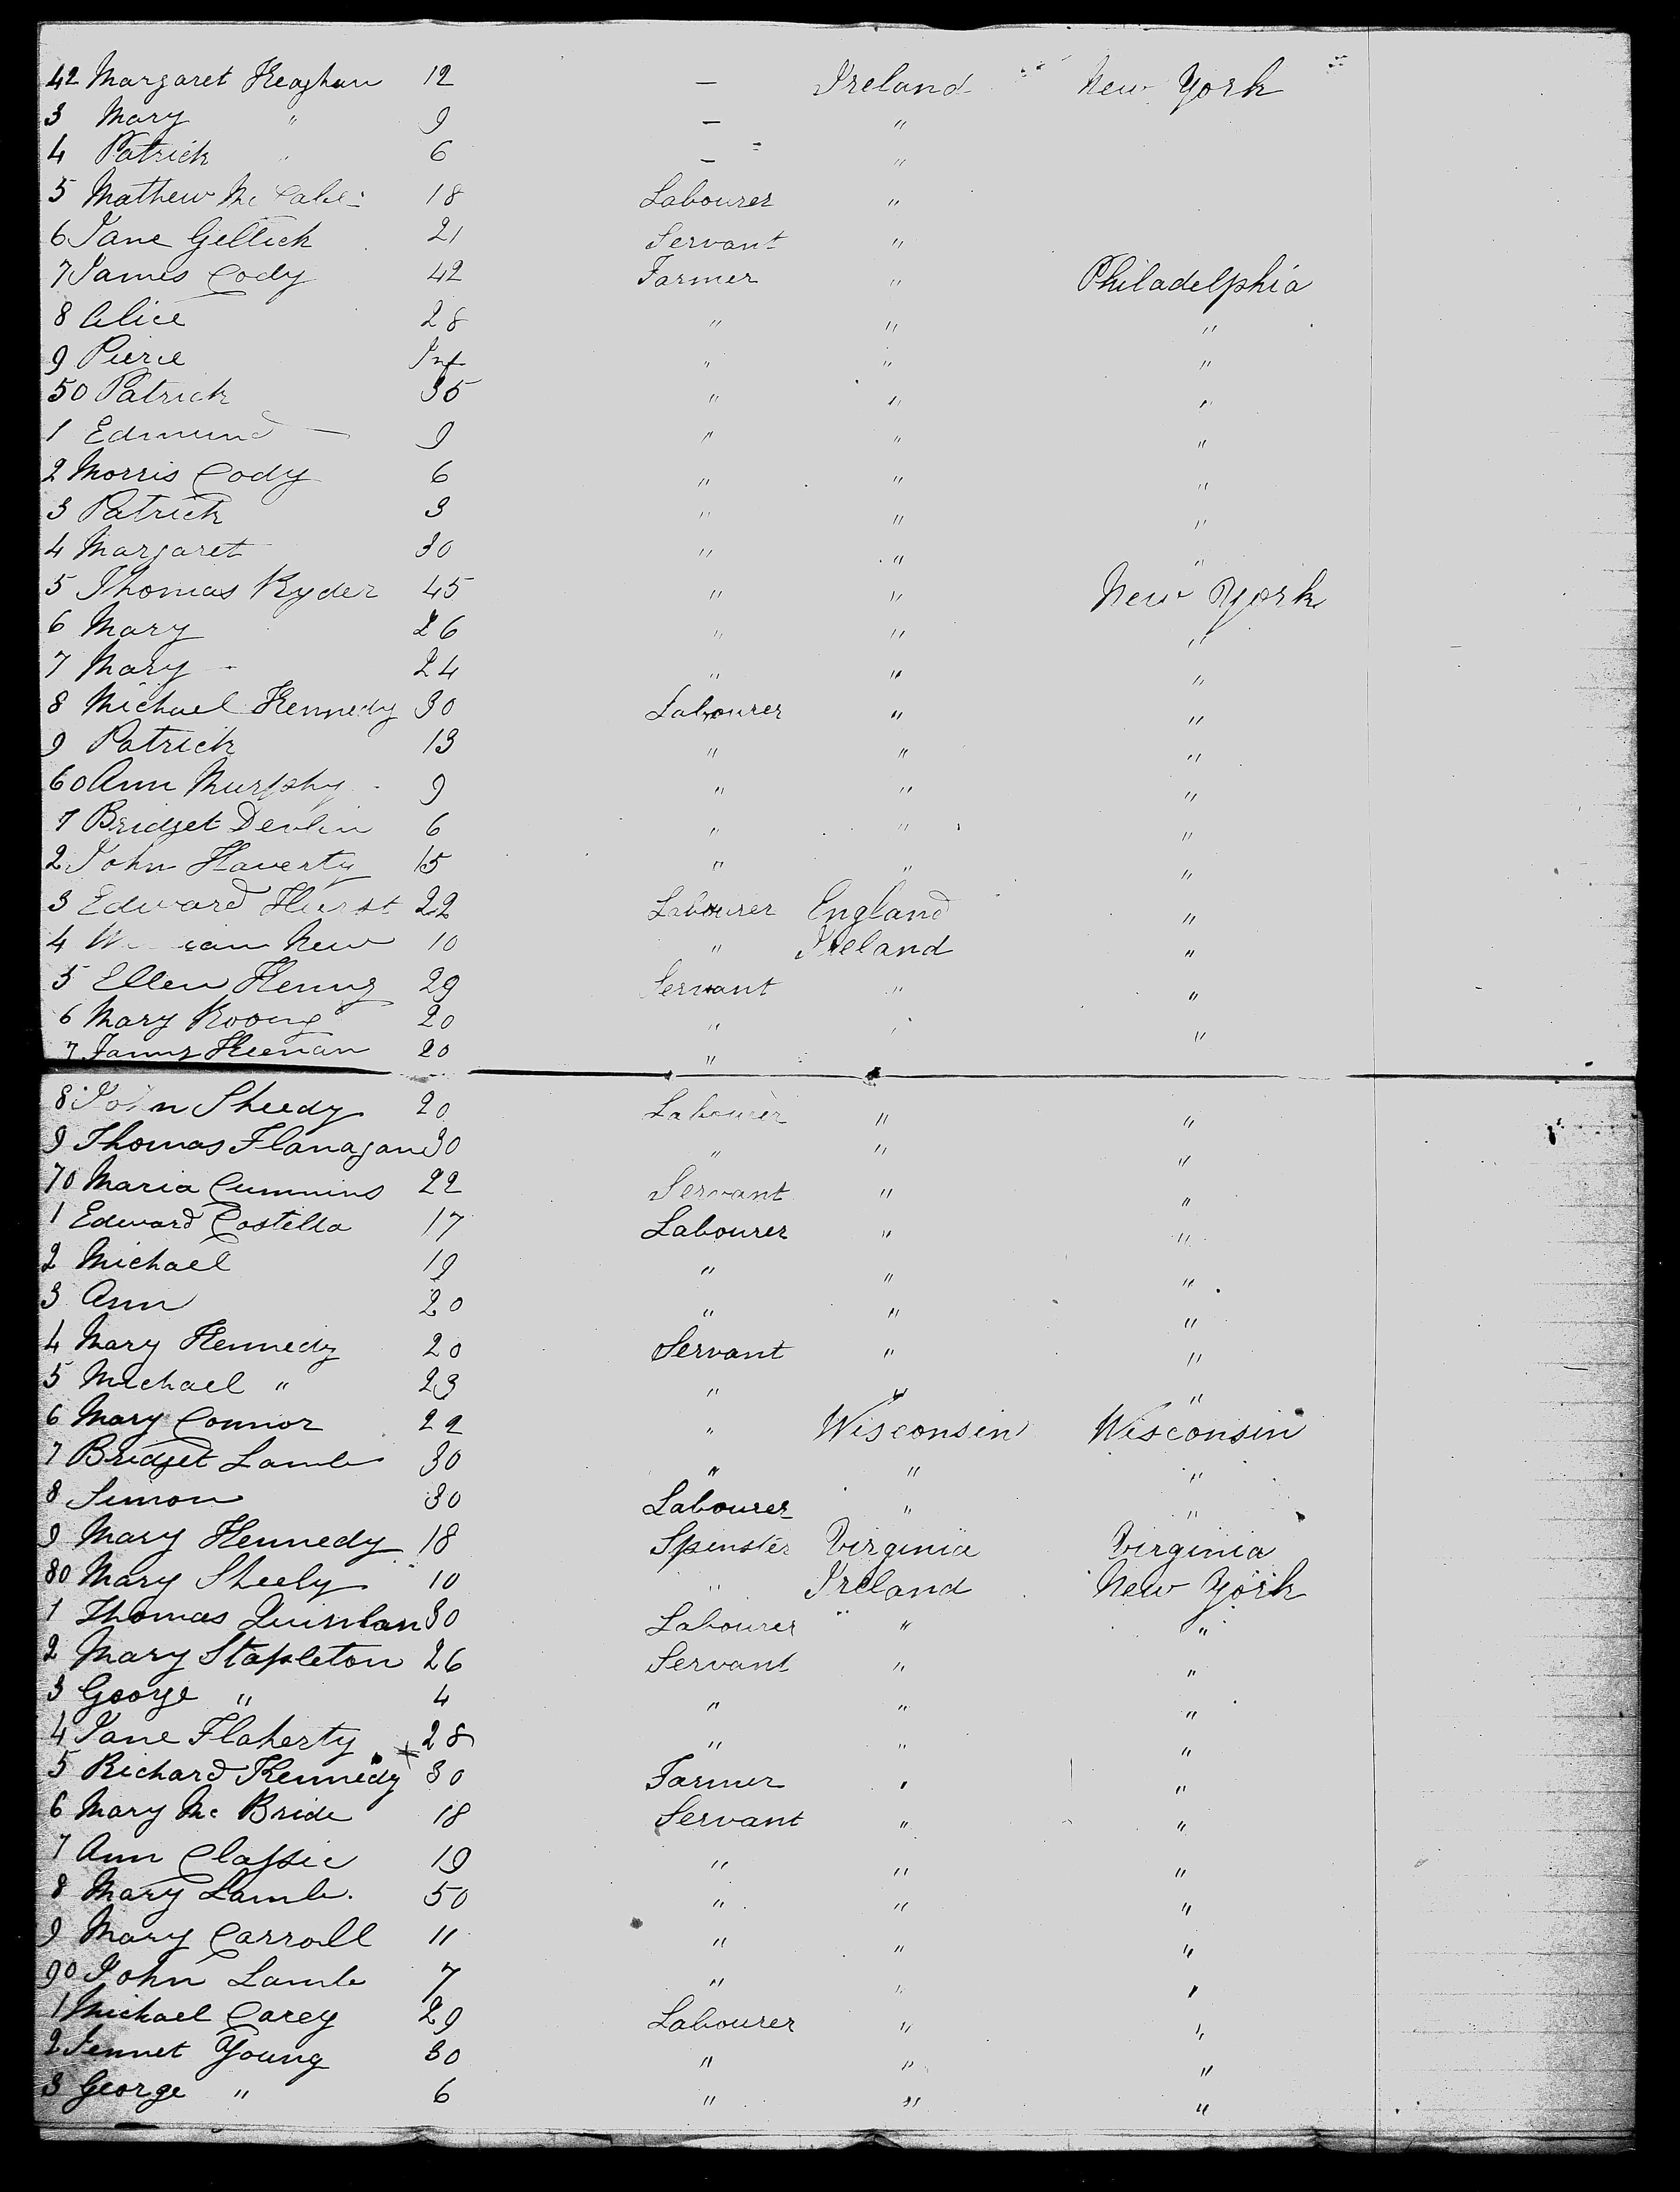 42 Margaret Keaghan 12 — Ireland New York
3 Mary " 9 — "
4 Patrick " 6 — "
5 Mathew Mc Cabe 18 Labourer "
6 Jane Gellick 21 Servant "
7 James Cody 42 Farmer " Philadelphia
8 Alice 28 " " "
9 Pierce Inf " " "
50 Patrick 35 " " "
1 Edmund — 9 " " "
2 Morris Cody 6 " " "
3 Patrick 3 " " "
4 Margaret 30 " " "
5 Thomas Ryder 45 " " New York
6 Mary 26 " " "
7 Mary 24 " " "
8 Michael Kennedy 30 Labourer " "
9 Patrick 13 " " "
60 Ann Murphy 9 " " "
1 Bridget Devlin 6 " " "
2 John Haverty 15 " " "
3 Edward Hurst 22 Labourer England "
4 New 10 " Ireland "
5 Ellen Henry 29 Servant " "
6 Mary 20 " " "
7 Keenan 20 "
8 John Sheedy 20 Labourer " "
9 Thomas Flanagan 30 " " "
70 Maria Cummins 22 Servant " "
1 Edward Costella 17 Labourer " "
2 Michael 19 " " "
3 Ann 20 " " "
4 Mary Kennedy 20 Servant " "
5 Michael " 23 " " "
6 Mary Connor 22 " Wisconsin Wisconsin
7 Bridget Lamb 30 " " "
8 Simon 30 Labourer " "
9 Mary Kennedy 18 Spinster Virginia Virginia
80 Mary Sheely 10 " Ireland New York
1 Thomas Quinlan 30 Labourer " "
2 Mary Stapleton 26 Servant " "
3 George " 4 " " "
4 Jane Flaherty 28 " " "
5 Richard Kennedy 30 Farmer " "
6 Mary Mc Bride 18 Servant " "
7 Ann 19 " " "
8 Mary Lamb. 50 " " "
9 Mary Carroll 11 " " "
90 John Lamb 7 " " "
1 Michael Carey 29 Labourer " "
2 Jennet Young 30 " " "
3 George " 6 " " "